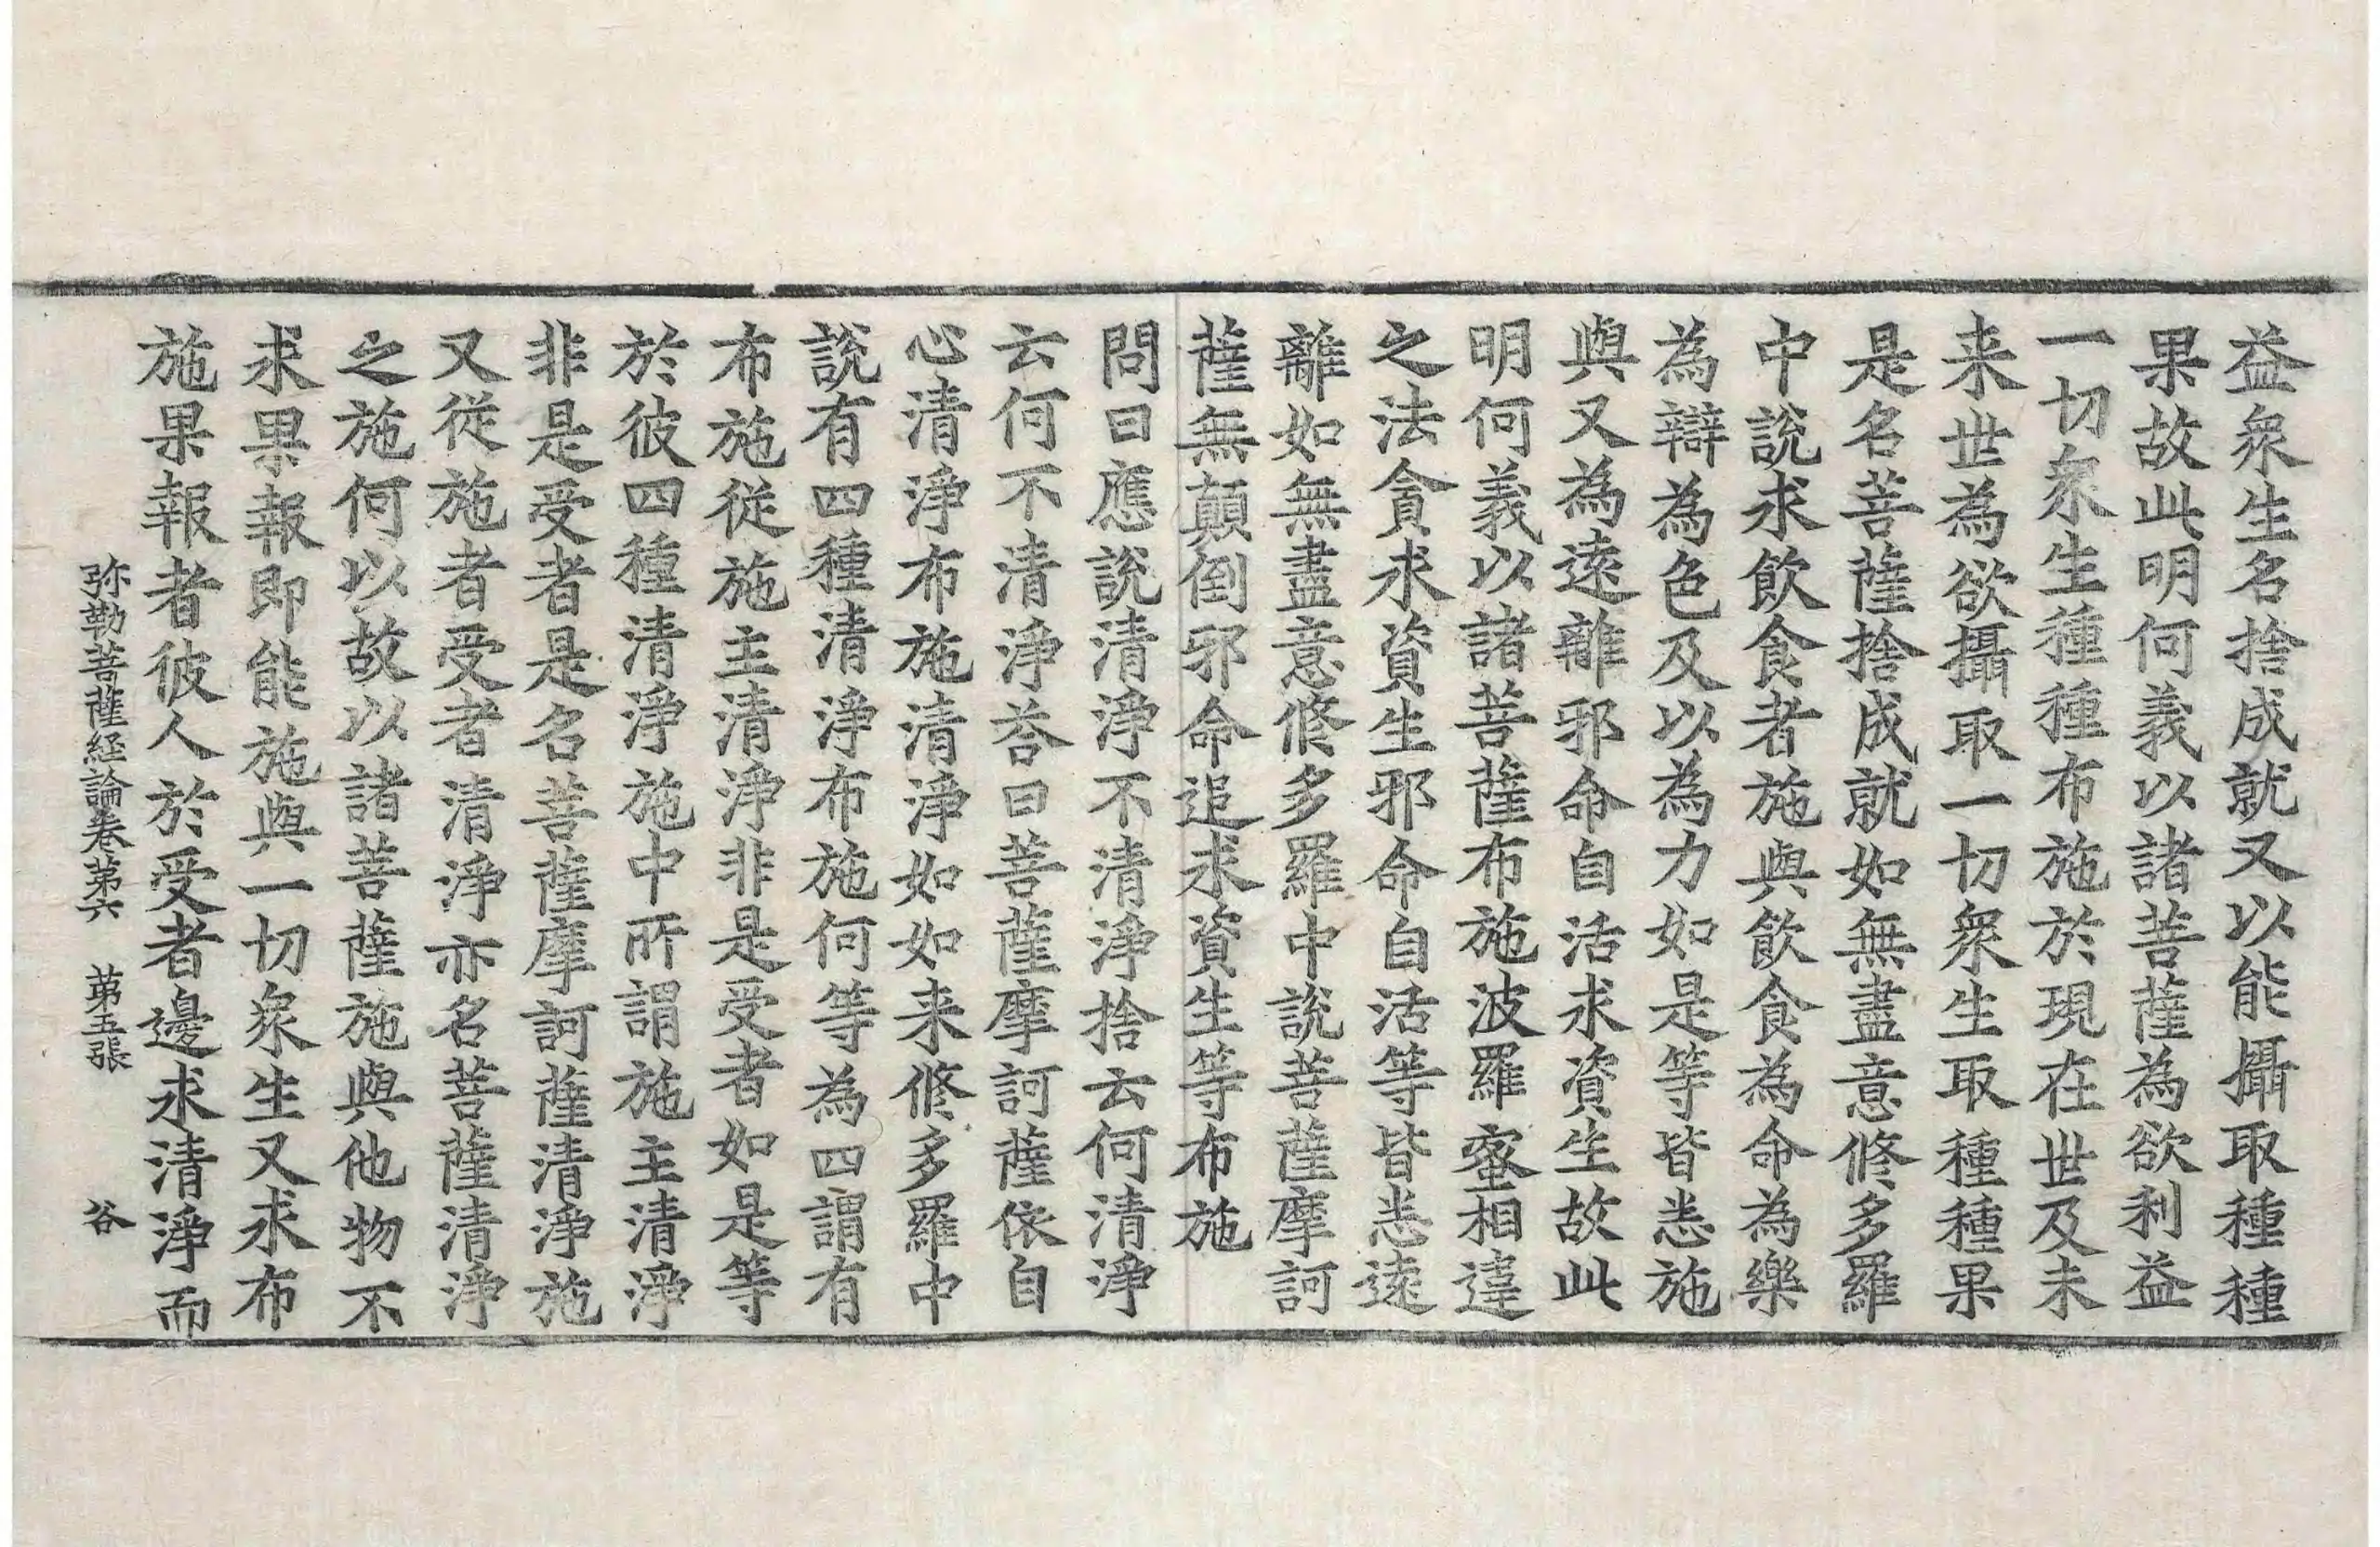 益衆生名捨成就又以能攝取種種
果故此明何義以諸菩薩為欲利益
一切衆生種種布施於現在世及未
来世為欲攝取一切衆生取種種果
是名菩薩捨成就如無盡意修多羅
中說求飲食者施與飲食為命為樂
為辯為色及以為力如是等皆悉施
與又為遠離邪命自活求資生故此
明何義以諸菩薩布施波羅蜜相違
之法貪求資生邪命自活等皆悉遠
離如無盡意修多羅中說菩薩摩訶
薩無顛倒邪命追求資生等布施
問曰應說清淨不清淨捨云何清淨
云何不清淨荅曰菩薩摩訶薩依自
心清淨布施清淨如如来修多羅中
說有四種清淨布施何等為四謂有
布施從施主清淨非是受者如是等
於彼四種清淨施中所謂施主清淨
非是受者是名菩薩摩訶薩清淨施
又從施者受者清淨亦名菩薩清淨
之施何以故以諸菩薩施與他物不
求果報即能施與一切衆生又求布
施果報者彼人於受者邊求清淨而
弥勒菩薩経論卷第六 第五張 谷